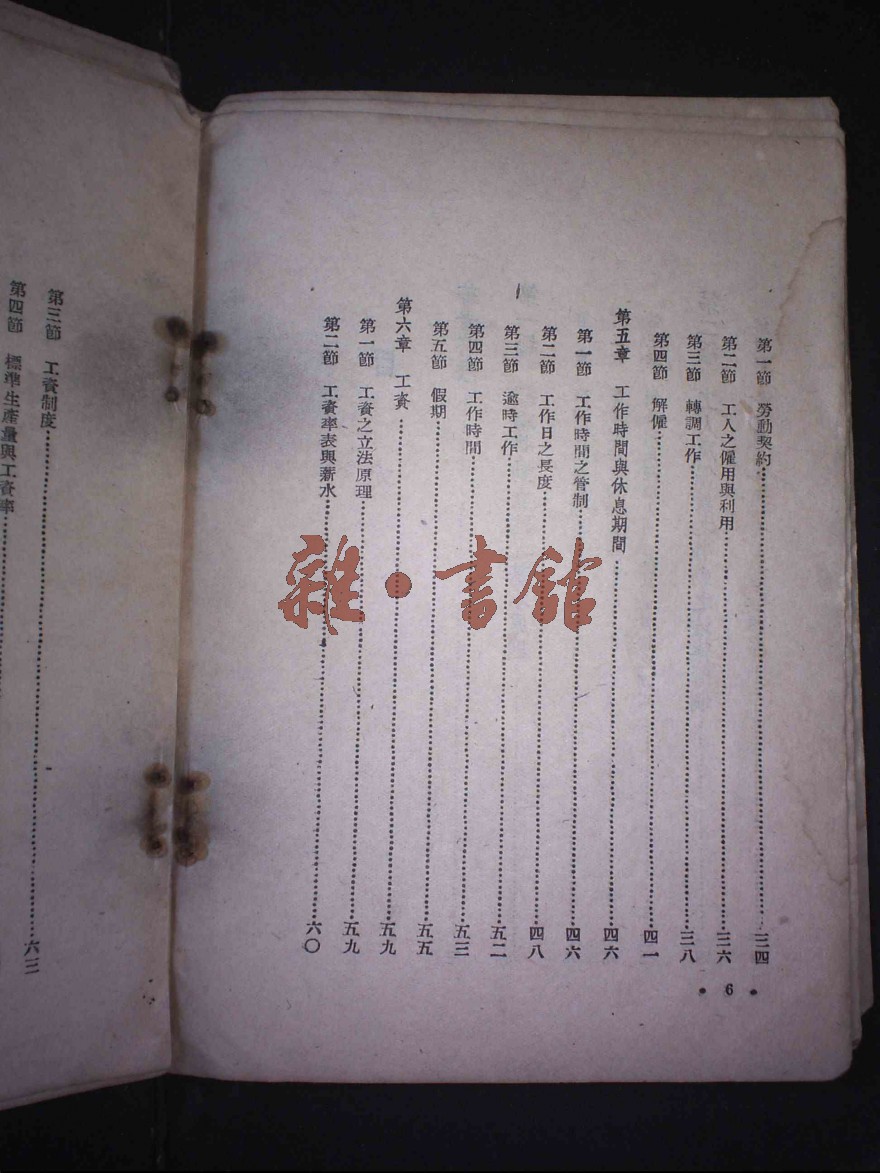 第一節　勞動契約……三四
第二節　工人之僱用與利用……三六
第三節　轉調工作……三八
第四節　解僱……四一
第五章　工作時間與休息期間……四六
第一節　工作時間之管制……四六
第二節　工作日之長度……四八
第三節　逾時工作……五二
第四節　工作時間……五三
第五節　假期……五五
第六章　工資……五九
第一節　工資之立法原理……五九
第二節　工資率表與薪水……六〇
• 6 •
第三節　工資制度……六三
第四節　標準生產量與工資率……
雜•書館